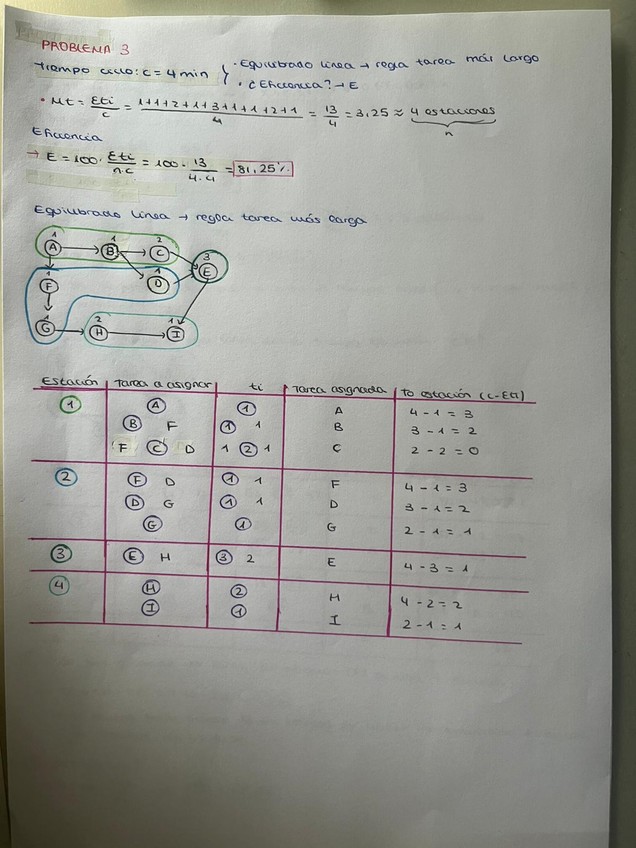 PROBLEMA 3
Tiempo ciclo: c = 4 min { · Equilibrado línea → regla tarea más larga
· ¿Eficiencia? → E
• Mt = Σti/c = 1+1+2+1+3+1+1+2+1/4 = 13/4 = 3,25 ≈ 4 estaciones
n
Eficiencia
→ E = 100 · Σti/n·c = 100 · 13/4·4 = 81,25%
Equilibrado línea → regla tarea más larga
1 1 2 3
A B C E
1 1
F D
1 2 1
G H I
Estación Tarea a asignar ti Tarea asignada To estación (c-Σti)
1 A 1 A 4 - 1 = 3
B F 1 1 B 3 - 1 = 2
F C D 1 2 1 C 2 - 2 = 0
2 F D 1 1 F 4 - 1 = 3
D G 1 1 D 3 - 1 = 2
G 1 G 2 - 1 = 1
3 E H 3 2 E 4 - 3 = 1
4 H 2 H 4 - 2 = 2
I 1 I 2 - 1 = 1